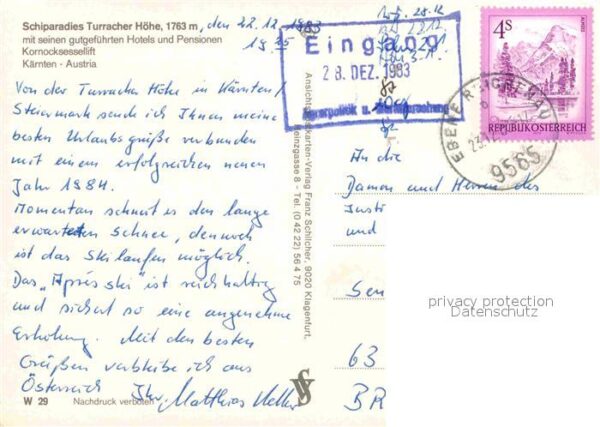 Schiparadies Turracher Höhe, 1763 m, den 22.12.1983
mit seinen gutgeführten Hotels und Pensionen
Kornocksessellift
Kärnten - Austria
Von der Turracher Höhe in Kärnten/
Steiermark sende ich Ihnen meine
besten Urlaubsgrüße verbunden
mit einem erfolgreichen neuen
Jahr 1984.
Momentan schneit es den lange
erwarteten Schnee, dennoch
ist das Skilaufen möglich.
Das "Après ski" ist reichhaltig
und sichert so eine angenehme
Erholung. Mit den besten
Grüßen verbleibe ich aus
Österreich Ihr Matthias
W 29 Nachdruck verboten
Ansichtskarten-Verlag Franz Schilcher, 9020 Klagenfurt,
gasse 8 - Tel. (0 42 22) 56 4 75
Eingang
28. DEZ. 1983
4S
REPUBLIK ÖSTERREICH
9565
An die
Damen und Herren des
und
63
BR
privacy protection
Datenschutz